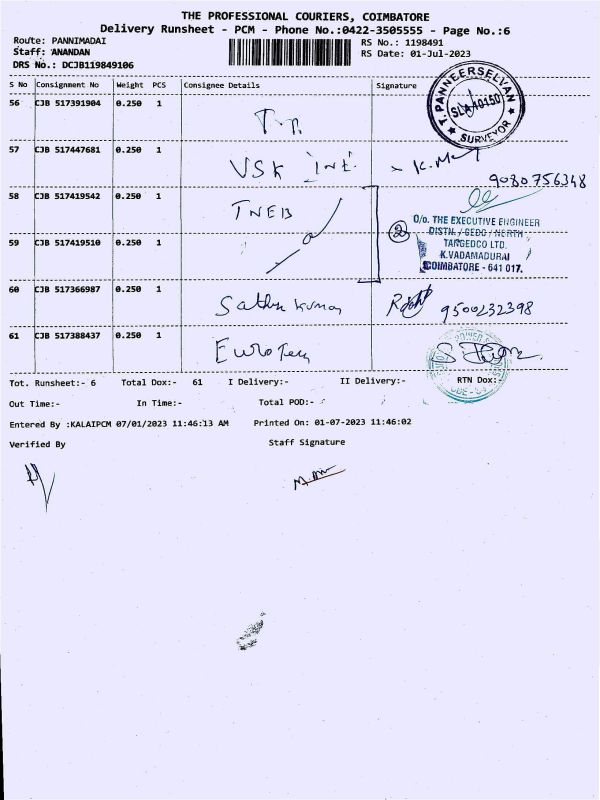 THE PROFESSIONAL COURIERS, COIMBATORE
Delivery Runsheet - PCM - Phone No.:0422-3505555 - Page No.:6
Route: PANNIMADAI
Staff: ANANDAN
DRS No.: DCJB119849106
RS No.: 1198491
RS Date: 01-Jul-2023
S No Consignment No Weight PCS Consignee Details Signature
T. PANNEERSELVAN
SURVEYOR
56 CJB 517391904 0.250 1
57 CJB 517447681 0.250 1 VSK Int.
9080756348
58 CJB 517419542 0.250 1 TNEB
59 CJB 517419510 0.250 1
2
O/o. THE EXECUTIVE ENGINEER
DISTN. / GEDC / NORTH
TANGEDCO LTD.
K.VADAMADURAI
COIMBATORE - 641 017.
60 CJB 517366987 0.250 1 Sathya Kumar 9500232398
61 CJB 517388437 0.250 1 Euro Tech
Tot. Runsheet:- 6 Total Dox:- 61 I Delivery:- II Delivery:- RTN Dox:-
Out Time:- In Time:- Total POD:-
Entered By :KALAIPCM 07/01/2023 11:46:13 AM Printed On: 01-07-2023 11:46:02
Verified By Staff Signature